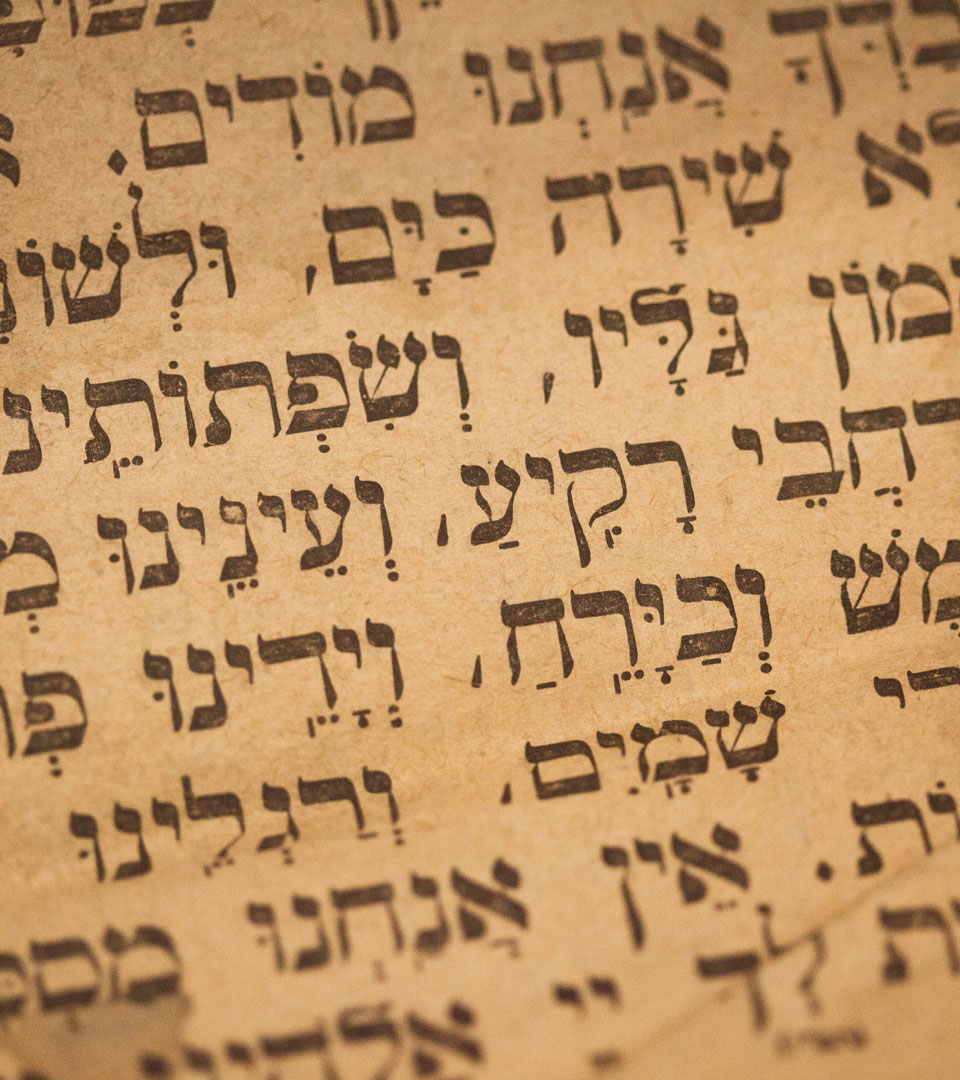 אֲנַחְנוּ מוֹדִים.
שִׁירָה כַּיָּם, וּלְשׁוֹנ
מוֹן גַּלָּיו, וְשִׂפְתוֹתֵינ
רְחֲבֵי רָקִיעַ, וְעֵינֵינוּ
מֶשׁ וְכַיָּרֵחַ, וְיָדֵינוּ
רֵי שָׁמָיִם, וְרַגְלֵינוּ
וֹת. אֵין אֲנַחְנוּ
לְךָ יי